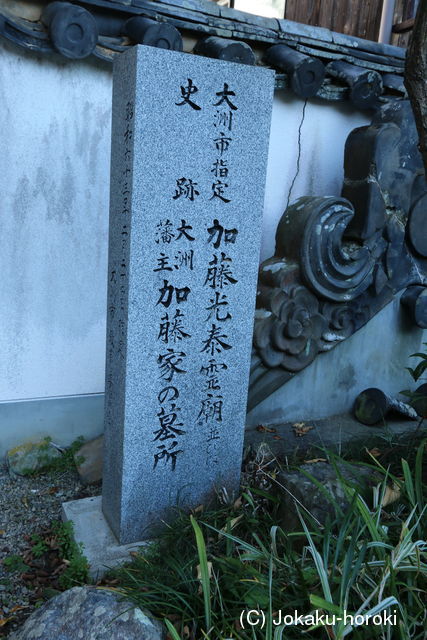 大洲市指定
史跡
加藤光泰霊廟並に
大洲
藩主
加藤家の墓所
(C) Jokaku-horoki